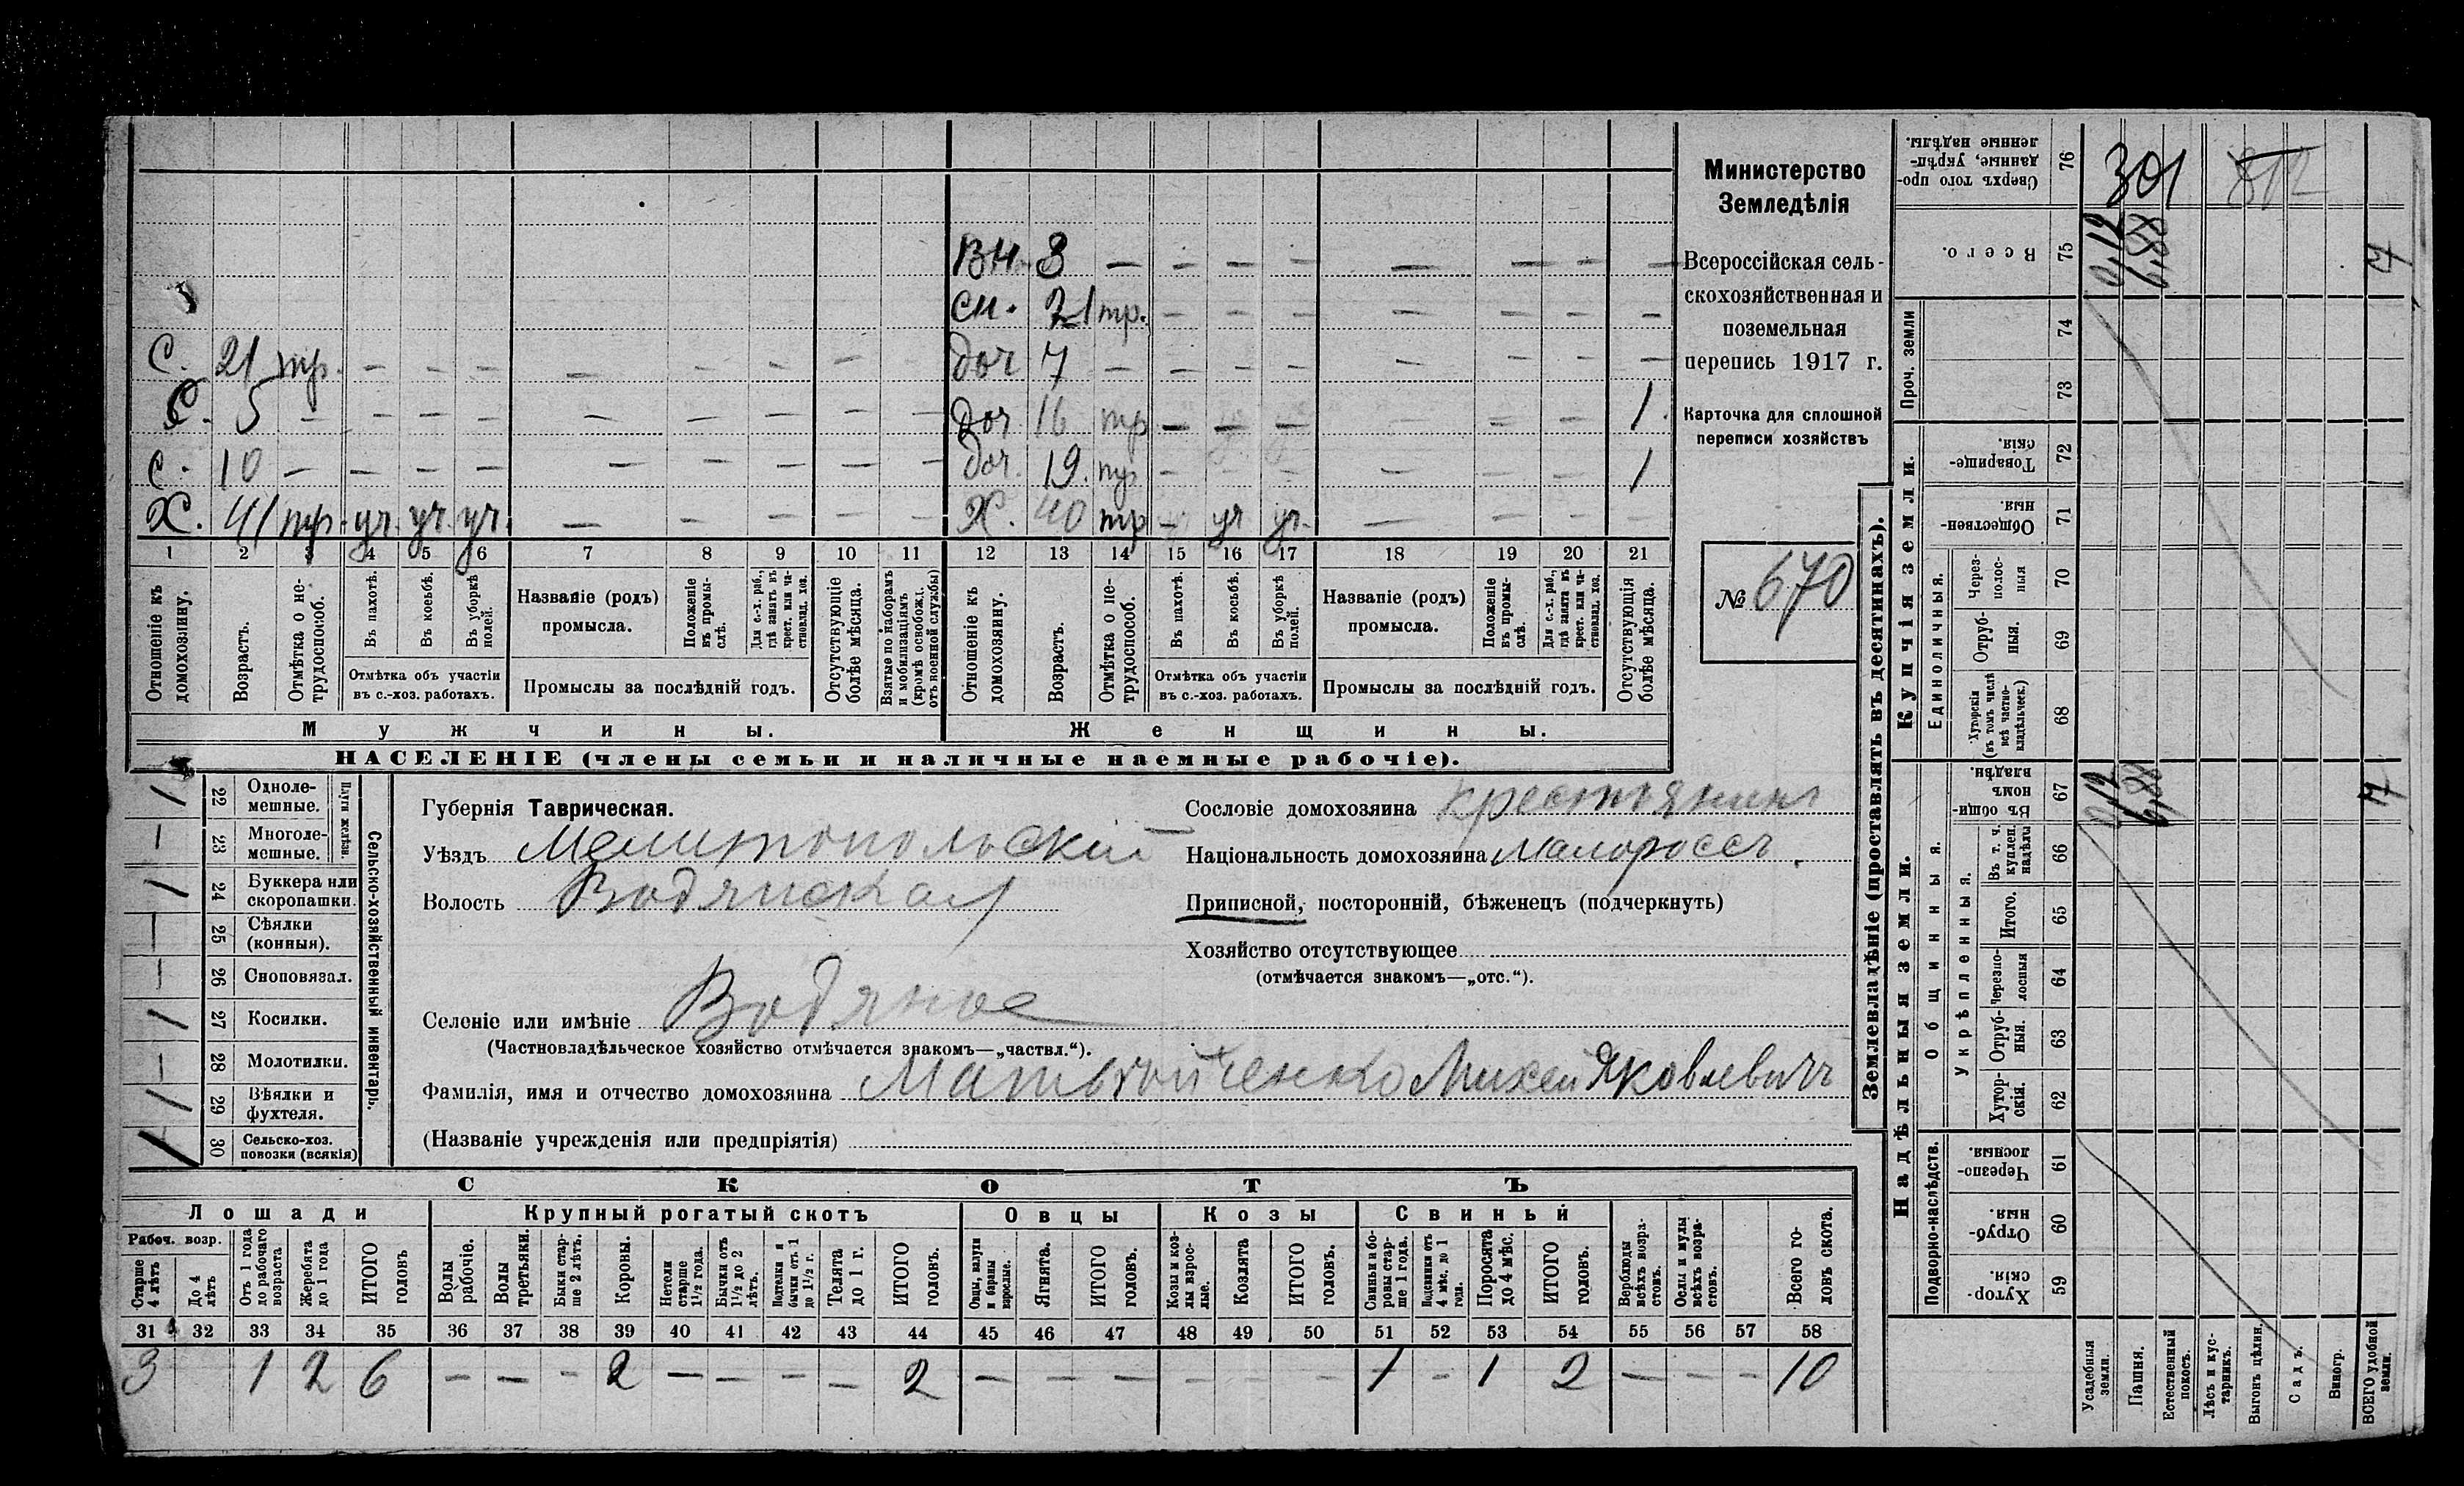 Министерство
Земледѣлія
Всероссійская сель-
скохозяйственная и
поземельная
перепись 1917 г.
Карточка для сплошной
переписи хозяйствъ
№ 670
ВН 3 — — — — — — — —
сн. 21 тр. — — — — — — —
С. 21 тр. — — — — — — — —
доч 7 — — — — — — — —
С. 5 — — — — — — — — —
доч 16 тр — — — — — — 1
с. 10 — — — — — — — — —
доч. 19. тр — — — — — — 1
Х. 41 тр. уч. уч. уч. — — — — —
Х. 40 тр — уч уч. — — — —
1 2 3 4 5 6 7 8 9 10 11 12 13 14 15 16 17 18 19 20 21
Отношеніе къ домохозяину.
Возрастъ.
Отмѣтка о не-трудоспособ.
Въ пахотѣ.
Въ косьбѣ.
Въ уборкѣ полей.
Отмѣтка объ участіи
въ с.-хоз. работахъ.
Названіе (родъ)
промысла.
Положеніе въ промы-слѣ.
Для с.-х. раб., гдѣ занятъ въ крест. или ча-стновлад. хоз.
Промыслы за послѣдній годъ.
Отсутствующіе болѣе мѣсяца.
Взятые по наборамъ и мобилизаціямъ (кромѣ освобожд. отъ военной службы)
Отношеніе къ домохозяину.
Возрастъ.
Отмѣтка о не-трудоспособ.
Въ пахотѣ.
Въ косьбѣ.
Въ уборкѣ полей.
Отмѣтка объ участіи
въ с.-хоз. работахъ.
Названіе (родъ)
промысла.
Положеніе въ промы-слѣ.
Для с.-х. раб., гдѣ занята въ крест. или ча-стновлад. хоз.
Промыслы за послѣдній годъ.
Отсутствующія болѣе мѣсяца.
Мужчины.
Женщины.
НАСЕЛЕНІЕ (члены семьи и наличные наемные рабочіе).
Сельско-хозяйственный инвентарь.
Плуги желѣзн.
1 22 Одноле-мешные.
— 23 Многоле-мешные.
1 24 Буккера или скоропашки.
— 25 Сѣялки (конныя).
— 26 Сноповязал.
1 27 Косилки.
— 28 Молотилки.
1 29 Вѣялки и фухтеля.
1 30 Сельско-хоз. повозки (всякія)
Губернія Таврическая.
Уѣздъ Мелитопольскій
Волость Водянская
Селеніе или имѣніе Водяное
(Частновладѣльческое хозяйство отмѣчается знакомъ—„частвл.“).
Сословіе домохозяина крестьянинъ
Національность домохозяина малороссъ.
Приписной, посторонній, бѣженецъ (подчеркнуть)
Хозяйство отсутствующее
(отмѣчается знакомъ—„отс.“).
Фамилія, имя и отчество домохозяина Матвѣйченко Михей Яковлевичъ
(Названіе учрежденія или предпріятія)
СКОТЪ
Лошади
Крупный рогатый скотъ
Овцы
Козы
Свиньи
Рабоч. возр.
Старше 4 лѣтъ
До 4 лѣтъ
Отъ 1 года до рабочаго возраста
Жеребята до 1 года
ИТОГО головъ
Волы рабочіе.
Волы третьяки.
Быки стар-ше 2 лѣтъ.
Коровы.
Нетели старше 1½ года.
Бычки отъ 1½ до 2 лѣтъ.
Подтелки и бычки отъ 1 до 1½ г.
Телята до 1 г.
ИТОГО головъ.
Овцы, валухи и бараны взрослые.
Ягнята.
ИТОГО головъ.
Козы и коз-лы взрос-лые.
Козлята
ИТОГО головъ.
Свиньи и бо-ровы стар-ше 1 года.
Подсвинки отъ 4 мѣс. до 1 года.
Поросята до 4 мѣс.
ИТОГО головъ.
Верблюды всѣхъ возра-стовъ.
Ослы и мулы всѣхъ возра-стовъ.
Всего го-ловъ скота.
31 32 33 34 35 36 37 38 39 40 41 42 43 44 45 46 47 48 49 50 51 52 53 54 55 56 57 58
3 1 2 6 — — — 2 — — — — 2 — — — — — — 1 — 1 2 — — — 10
Землевладѣніе (проставлять въ десятинахъ).
Надѣльныя земли.
Купчія земли.
Проч. земли
Подворно-наслѣдств.
Общинныя.
Укрѣпленныя.
Единоличныя.
Сверхъ того про-данные, укрѣп-ленные надѣлы. 76 301 812
Всего. 75 0,12 6,88 7
74
73
Товарище-скія. 72
Обществен-ныя. 71
Через-полос-ныя 70
Отруб-ныя. 69
Хуторскія (въ томъ числѣ всѣ частно-владѣльческ.) 68
Въ общи-номъ владѣн. 67 0,12 6,88 7
Въ т. ч. куплен. надѣлы 66
Итого. 65
Черезпо-лосныя 64
Отруб-ныя. 63
Хутор-скія. 62
Черезпо-лосныя. 61
Отруб-ныя. 60
Хутор-скія. 59
Усадебныя земли.
Пашня.
Естественный покосъ.
Лѣсъ и кус-тарникъ.
Выгонъ цѣлин.
Садъ.
Виногр.
ВСЕГО удобной земли.